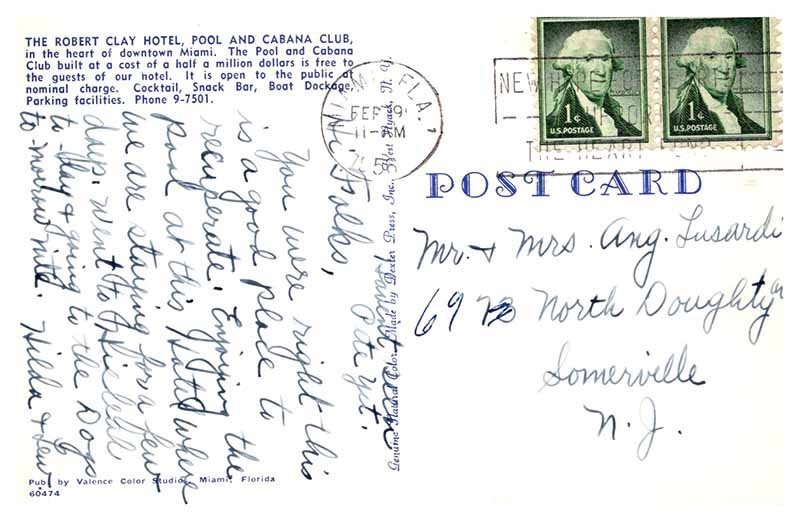 THE ROBERT CLAY HOTEL, POOL AND CABANA CLUB,
in the heart of downtown Miami. The Pool and Cabana
Club built at a cost of a half a million dollars is free to
the guests of our hotel. It is open to the public at
nominal charge. Cocktail, Snack Bar, Boat Dockage,
Parking facilities. Phone 9-7501.
Hi Folks,
Haven't seen
Pete yet.
You were right this
is a good place to
recuperate. Enjoying the
pool at this Hotel where
we are staying for a few
days. Went to Hialeah
to-day & going to the Dogs
to-morrow nite. Hilda & Lew
Pub. by Valence Color Studios, Miami, Florida
60474
Genuine Natural Color Made by Dexter Press, Inc., West Nyack, N. Y.
MIAMI, FLA.
FEB 9
11 - PM
1¢
U.S. POSTAGE
1¢
U.S. POSTAGE
THE HEART FUND
POST CARD
Mr. & Mrs. Ang. Lusardi
69 North Doughty
Somerville
N. J.